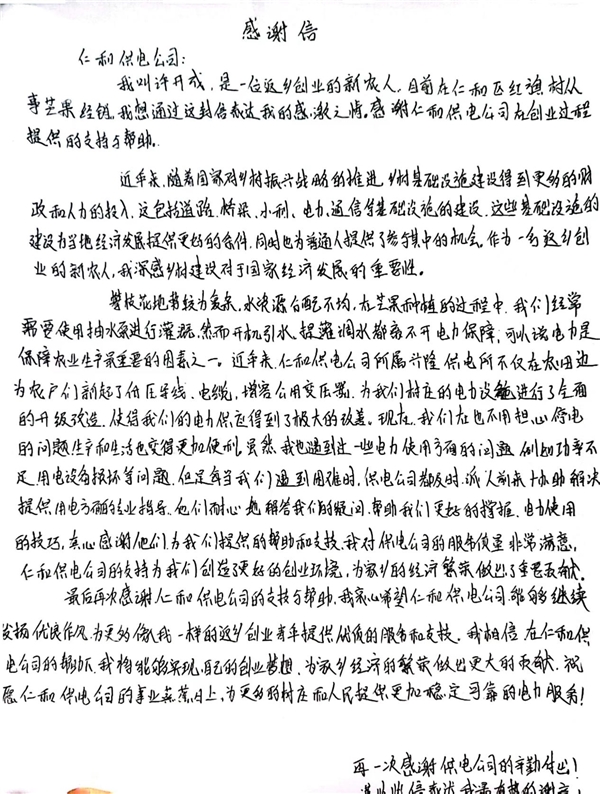 感谢信
仁和供电公司:
我叫许开成,是一位返乡创业的新农人,目前在仁和区红旗村从
事芒果经销,我想通过这封信表达我的感激之情。感谢仁和供电公司在创业过程
提供的支持与帮助。
近年来,随着国家对乡村振兴战略的推进,乡村基础设施建设得到更多的财
政和人力的投入,这包括道路、桥梁、水利、电力、通信等基础设施的建设,这些基础设施的
建设为当地经济发展提供更好的条件,同时也为普通人提供了参与其中的机会,作为一名返乡创
业的新农人,我深感乡村建设对于国家经济发展的重要性。
攀枝花地势较为复杂,水资源分配不均,在芒果种植的过程中,我们经常
需要使用抽水泵进行灌溉,然而开机引水、提灌调水都离不开电力保障,可以说电力是
保障农业生产最重要的因素之一。近年来,仁和供电公司所属兴隆供电所不仅在农田边
为农户们新起了低压导线、电缆,增容公用变压器,为我们村庄的电力设施进行了全面
的升级改造,使得我们的电力供应得到了极大的改善。现在,我们在也不用担心停电
的问题,生产和生活也变得更加便利,虽然,我也遇到过一些电力使用方面的问题,例如功率不
足,用电设备损坏等问题,但是每当我们遇到困难时,供电公司都及时派人前来协助解决
提供用电方面的专业指导,他们耐心地解答我们的疑问,帮助我们更好的掌握电力使用
的技巧,衷心感谢他们为我们提供的帮助和支持,我对供电公司的服务质量非常满意,
仁和供电公司的支持为我们创造了更好的创业环境,为家乡的经济繁荣做出了重要贡献。
最后再次感谢仁和供电公司的支持与帮助,我衷心希望仁和供电公司能够继续
发扬优良作风,为更多像我一样的返乡创业青年提供优质的服务和支持,我相信在仁和供
电公司的帮助下,我将能够实现自己的创业梦想,为家乡经济的繁荣做出更大的贡献,祝
愿仁和供电公司的事业蒸蒸日上,为更多的村庄和人民提供更加稳定可靠的电力服务!
再一次感谢供电公司的辛勤付出!